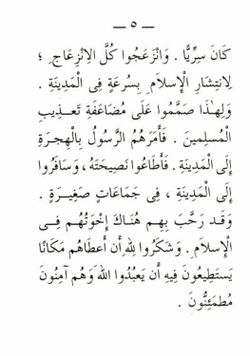 — ٥ —
كَانَ سِرِّيًّا . وَانْزَعَجُوا كُلَّ الِانْزِعَاجِ ؛
لِانْتِشَارِ الْإِسْلَامِ بِسُرْعَةٍ فِى الْمَدِينَةِ .
وَلِهٰذَا صَمَّمُوا عَلَى مُضَاعَفَةِ تَعْذِيبِ
الْمُسلِمينَ . فَأَمَرَهُمُ الرَّسُولُ بِالْهِجرَةِ
إِلَى الْمَدِينَةِ . فَأَطَاعُوا نَصِيحَتَهُ ، وَسَافَرُوا
إِلَى الْمَدِينَةِ ، فِى جَمَاعَاتٍ صَغِيرَةٍ .
وَقَد رَحَّبَ بِهِم هُنَاكَ إِخْوَتُهُم فِى
الْإِسلَامِ . وَشَكَرُوا لِلّٰهِ أَن أَعطَاهُم مَكَانًا
يَستَطِيعُونَ فِيهِ أَن يَعبُدُوا اللهَ وَهُم آمِنُونَ
مُطمَئِنُّونَ .